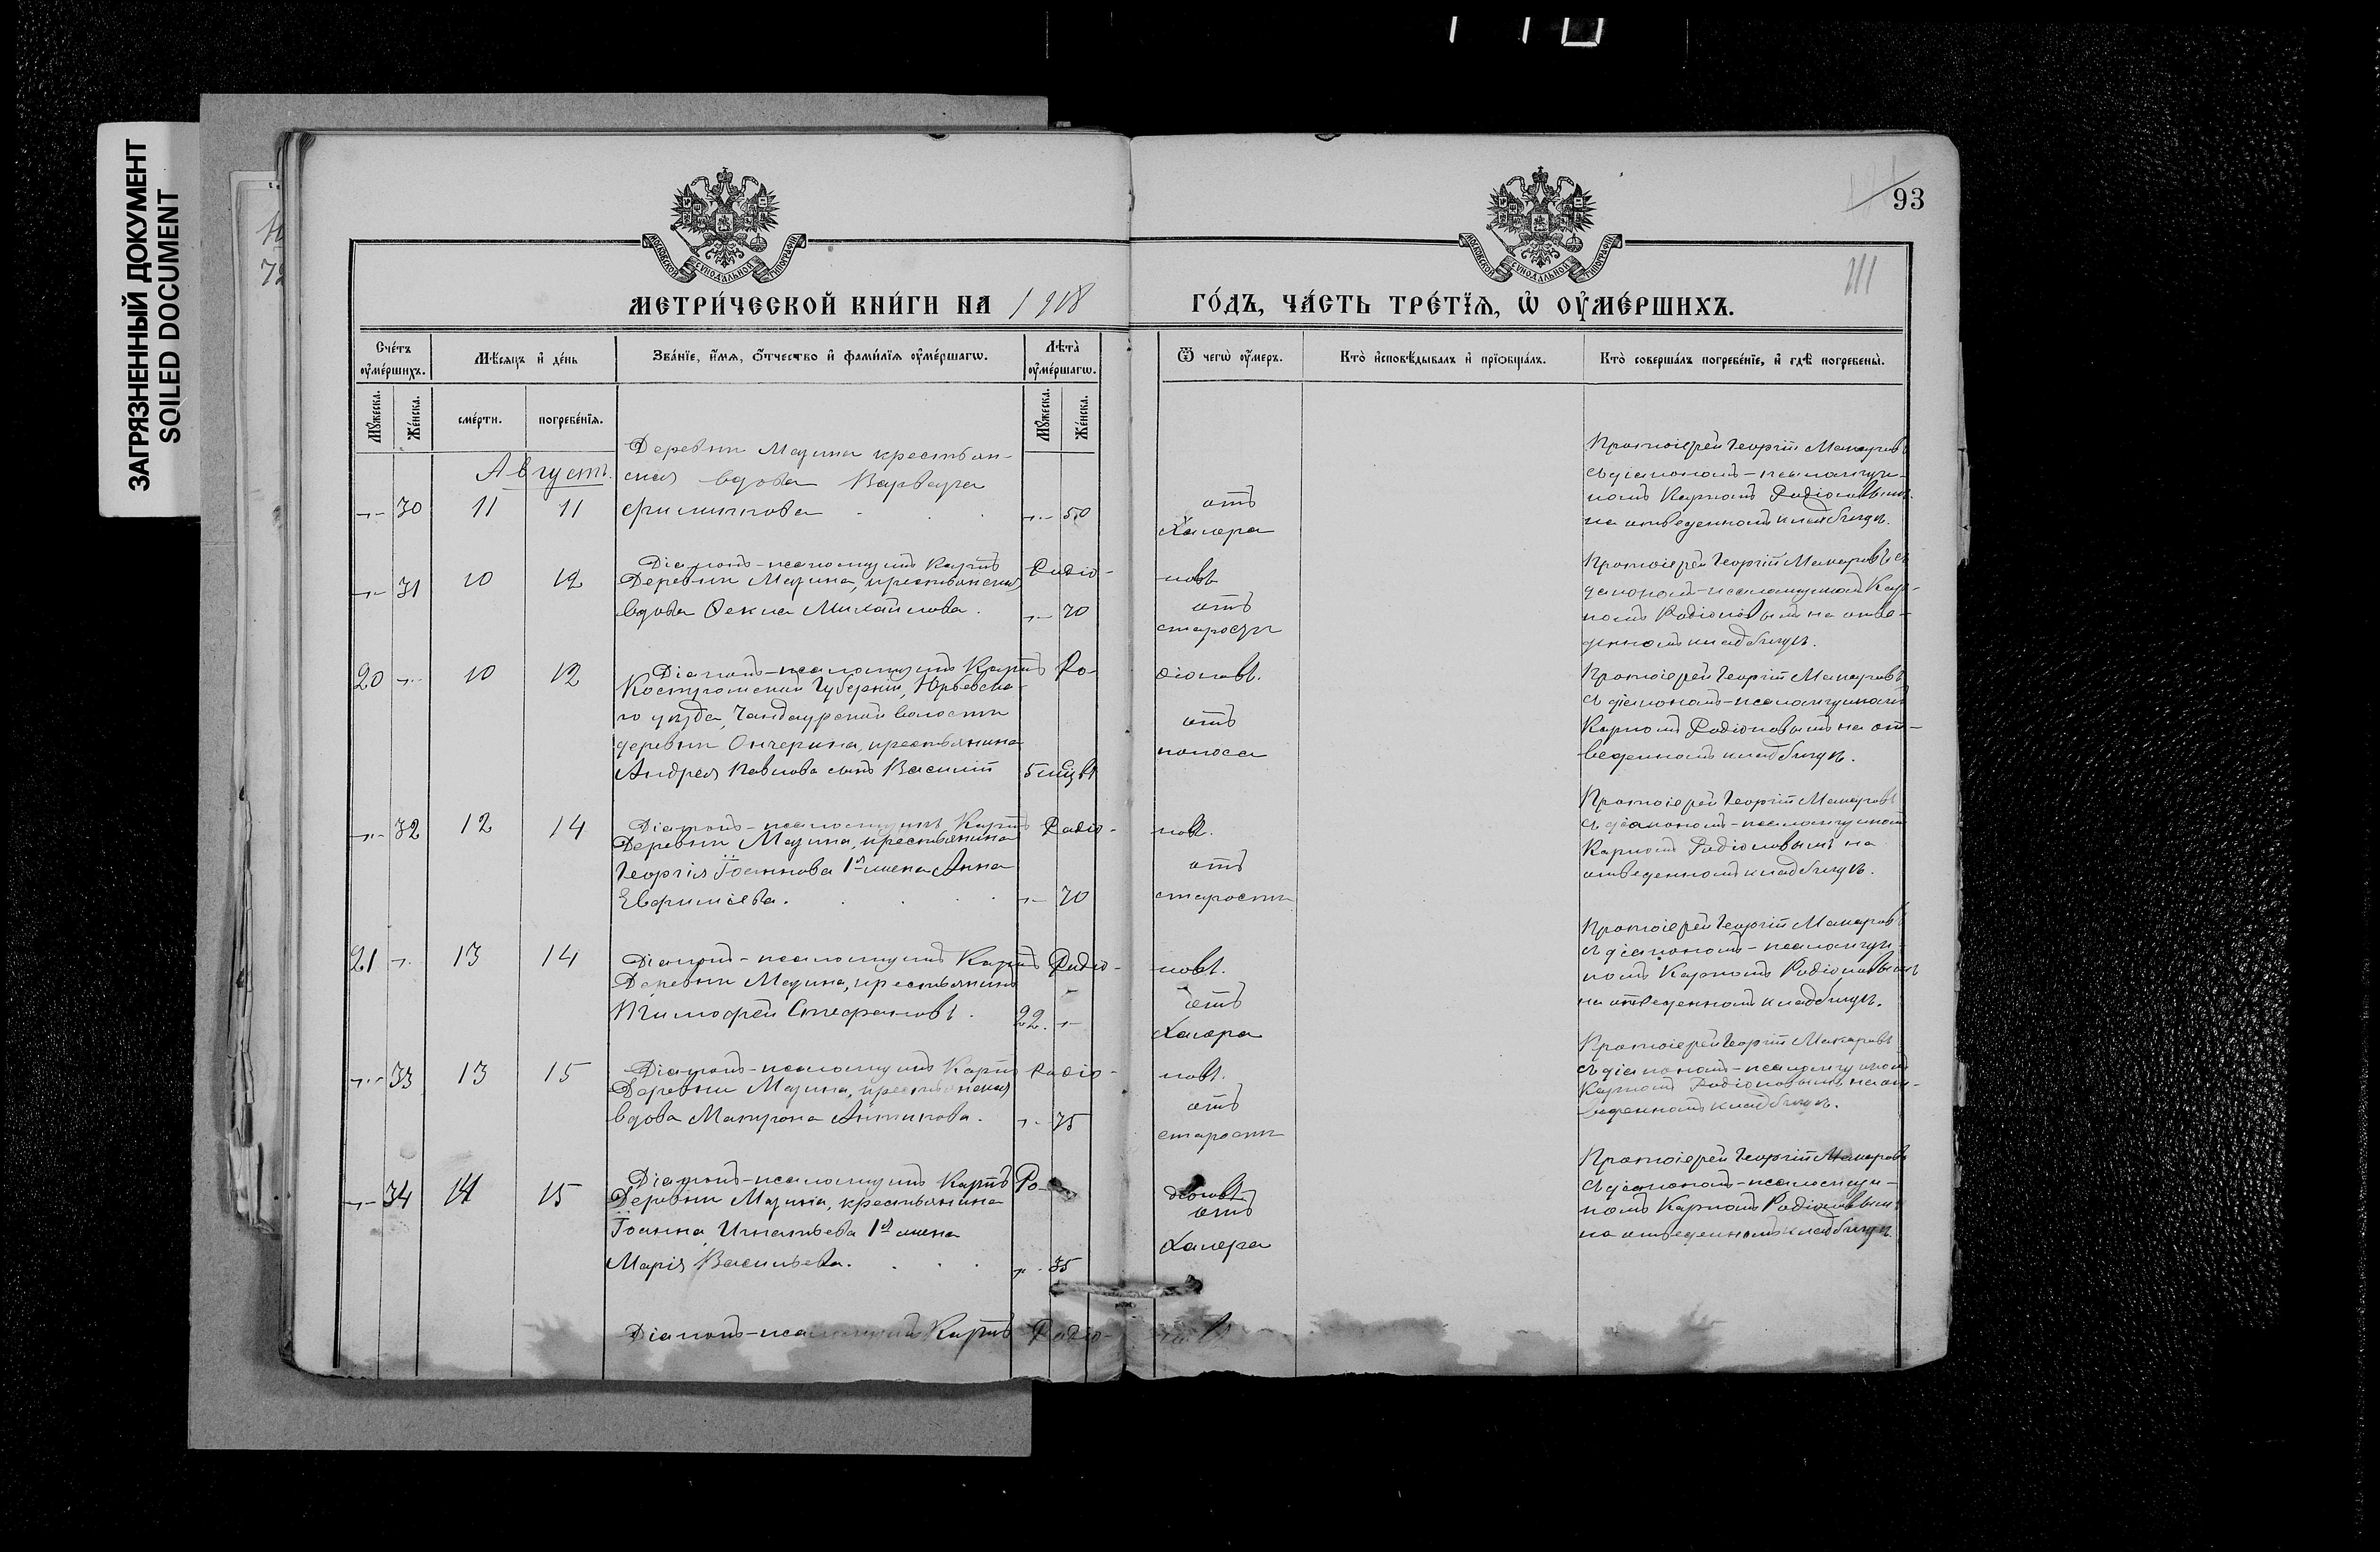 ЗАГРЯЗНЕННЫЙ ДОКУМЕНТ
SOILED DOCUMENT
93
111
МОСКОВСКОЙ СУНОДАЛЬНОЙ ТИПОГРАФІИ
МОСКОВСКОЙ СУНОДАЛЬНОЙ ТИПОГРАФІИ
МЕТРИ́ЧЕСКОЙ КНИ́ГИ НА 1918 ГО́ДЪ, ЧА́СТЬ ТРЕ́ТЇѦ, Ѡ҆ ОУ҆МЕ́РШИХЪ.
Сче́тъ оу҆ме́ршихъ.
Мѣ́сяцъ и҆ де́нь
Зва́нїе, и҆́мѧ, ѻ҆́тчество и҆ фами́лїѧ оу҆ме́ршагѡ.
Лѣта̀ оу҆ме́ршагѡ.
Ѿ чегѡ̀ оу҆́меръ.
Кто̀ и҆сповѣ́дывалъ и҆ прїѻбща́лъ.
Кто̀ соверша́лъ погребе́нїе, и҆ гдѣ̀ погребены̀.
Мꙋ́жеска.
Же́нска.
сме́рти.
погребе́нїѧ.
Мꙋ́жеска.
Же́нска.
Августъ.
Деревни Мазина крестьян-
ская вдова Варвара
30 11 11 Филиппова 50
отъ
Холера
Протоіерей Георгій Макаровъ
съ діакономъ-псаломщи-
комъ Карпомъ Радіоновымъ
на отведенномъ кладбищѣ.
Діаконъ-псаломщикъ Карпъ Радіо-новъ
31 10 12 Деревни Мазина, крестьянская
вдова Фекла Михайлова. 70
отъ
старости
Протоіерей Георгій Макаровъ съ
діакономъ-псаломщикомъ Кар-
помъ Радіоновымъ на отве-
денномъ кладбищѣ.
Діаконъ-псаломщикъ Карпъ Ро-діоновъ.
20 10 12 Костромской губерніи, Юрьевска-
го уѣзда, волости
деревни крестьянина
Андрея Павлова сынъ Василій 5 мѣсяц
отъ
поноса
Протоіерей Георгій Макаровъ
съ діакономъ-псаломщикомъ
Карпомъ Радіоновымъ на от-
веденномъ кладбищѣ.
Діаконъ-псаломщикъ Карпъ Радіо-новъ.
32 12 14 Деревни Мазина, крестьянина
Георгія Іоаннова 1ая жена Анна
Евфиміева. 70
отъ
старости
Протоіерей Георгій Макаровъ
съ діакономъ-псаломщикомъ
Карпомъ Радіоновымъ на
отведенномъ кладбищѣ.
Діаконъ-псаломщикъ Карпъ Радіо-новъ.
21 13 14 Деревни Мазина, крестьянинъ
Тимофей Стефановъ. 22.
отъ
Холера
Протоіерей Георгій Макаровъ
съ діакономъ-псаломщи-
комъ Карпомъ Радіоновымъ
на отведенномъ кладбищѣ.
Діаконъ-псаломщикъ Карпъ Радіо-новъ.
33 13 15 Деревни Мазина, крестьянская
вдова Матрона Антипова. 75
отъ
старости
Протоіерей Георгій Макаровъ
съ діакономъ-псаломщикомъ
Карпомъ Радіоновымъ на от-
веденномъ кладбищѣ.
Діаконъ-псаломщикъ Карпъ Ро-діоновъ
34 14 15 Деревни Мазина, крестьянина
Іоанна Игнатьева 1ая жена
Марія Васильева. 35
отъ
Холера
Протоіерей Георгій Макаровъ
съ діакономъ-псаломщи-
комъ Карпомъ Радіоновымъ
на отведенномъ кладбищѣ.
Діаконъ-псаломщикъ Карпъ Радіо-новъ